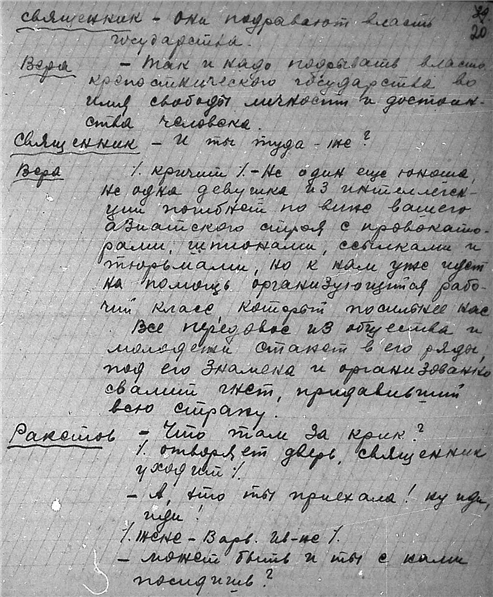 священник - они подравают власть
государства.
Вера - Так и надо подрывать власть
крепостнического государства во
имя свободы личности и достоин-
ства человека.
священник - И ты туда-же?
Вера /. кричит /. - Не один еще юноша,
не одна девушка из интеллеген-
ции погибнет по вине вашего
азиатского строя с провокато-
рами, шпионами, ссылками и
тюрьмами, но к нам уже идет
на помощь организующийся рабо-
чий класс, который посильнее нас
Все передовое из общества и
молодежи станет в его ряды,
под его знамена и организованно
свалит гнет, придавивший
всю страну.
Ракетов - Что там за крик?
/. отворяет дверь, священник
уходит /.
- А, это ты приехала! ну иди,
иди!
/. жене - Варв. Ив-не /.
- может быть и ты с нами
посидишь?
20